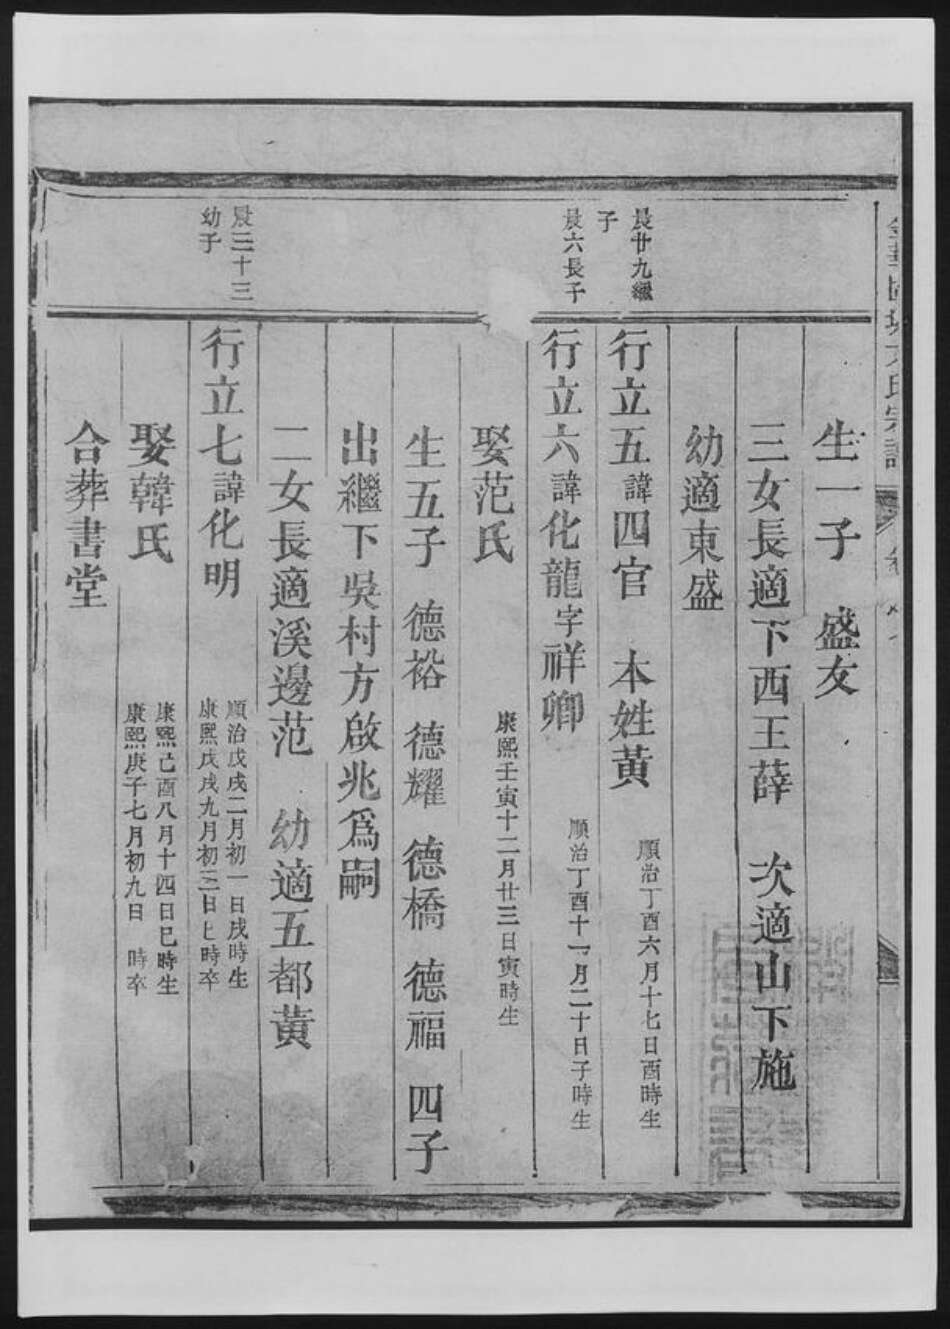 生一子　盛友
三女長適下西王薛　次適山下施
幼適東盛
晨廿九繼
子
行立五諱四官　本姓黃　順治丁酉六月十七日酉時生
晨六長子
行立六諱化龍字祥卿　順治丁酉十一月二十日子時生
娶范氏　康熙壬寅十二月廿三日寅時生
生五子　德裕　德耀　德橋　德福　四子
出繼下吳村方啟兆爲嗣
二女長適溪邊范　幼適五都黃
晨三十三
幼子
行立七諱化明　順治戊戌二月初一日戌時生
康熙戊戌九月初三日巳時卒
娶韓氏　康熙己酉八月十四日巳時生
康熙庚子七月初九日　時卒
合葬書堂